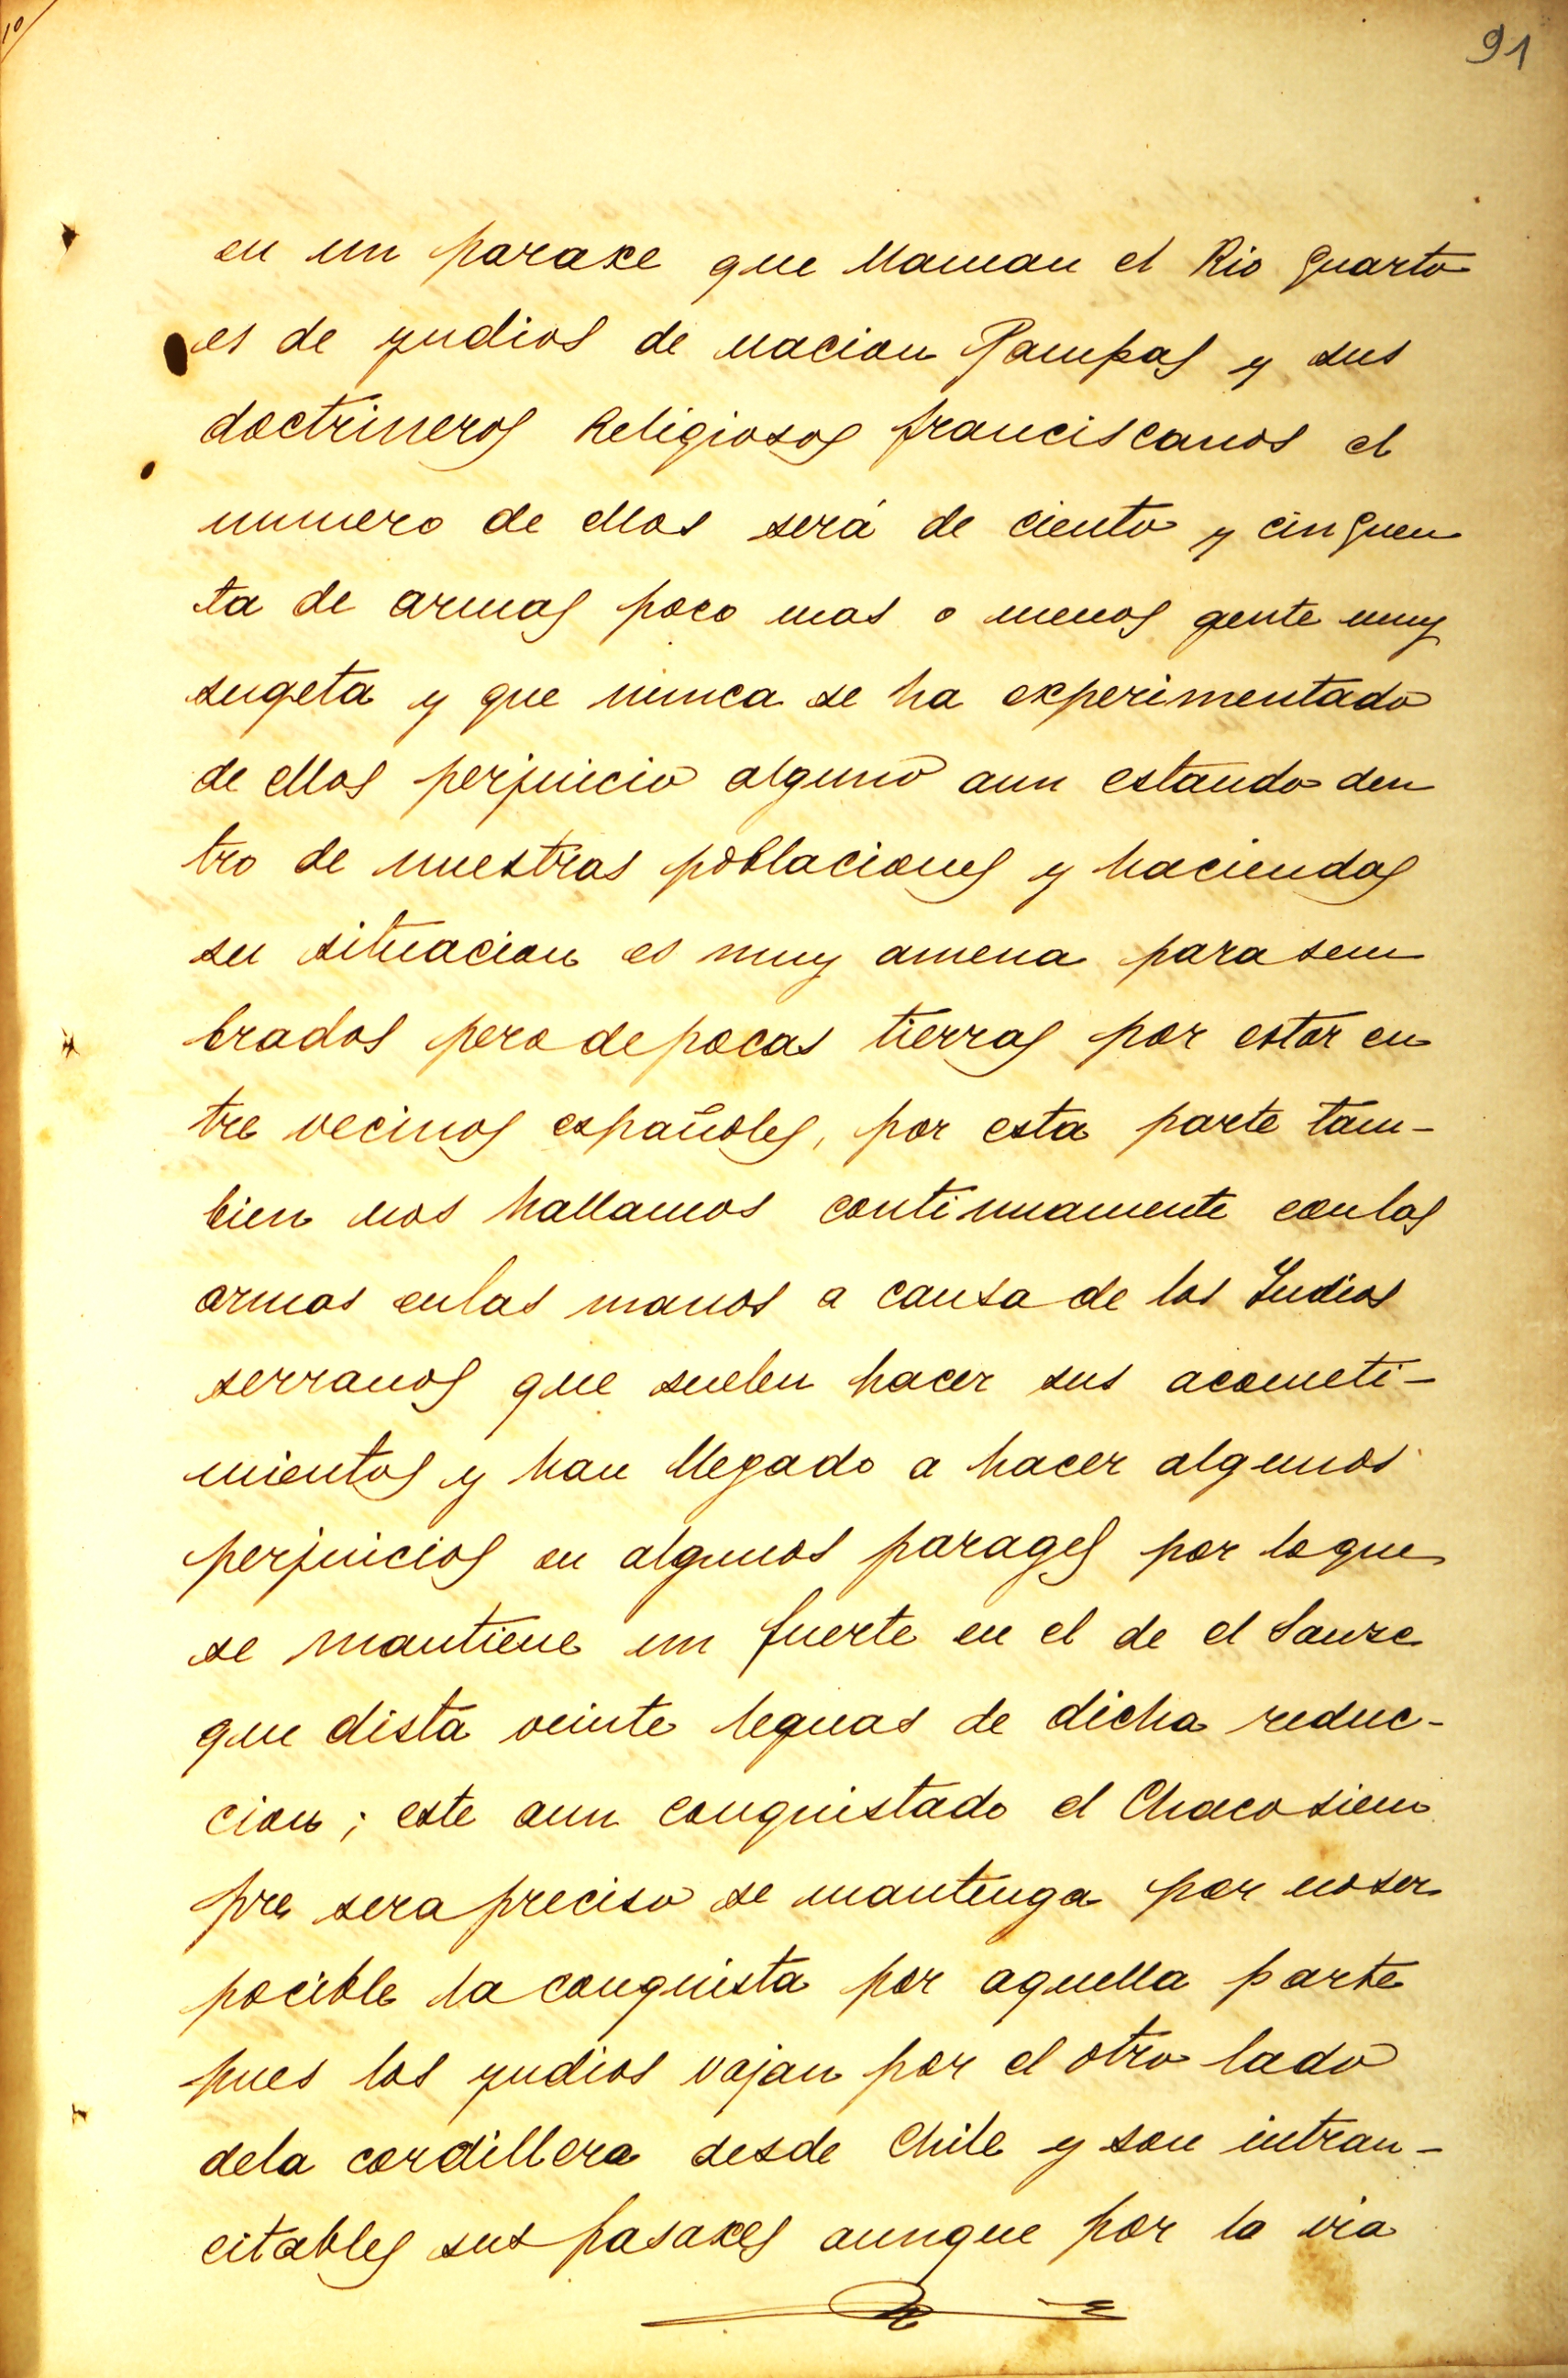 10
91
en un paraxe que llaman el Rio Quarto
es de yndios de nacion Pampas y sus
doctrineros Religiosos franciscanos el
numero de ellos será de ciento y cinquen
ta de armas poco mas o menos gente muy
sugeta y que nunca se ha experimentado
de ellos perjuicio alguno aun estando den
tro de nuestras poblaciones y haciendas
su situacion es muy amena para sem
brados pero de pocas tierras por estar en
tre vecinos españoles, por esta parte tam-
bien nos hallamos continuamente con las
armas en las manos a causa de los Indios
serranos que suelen hacer sus acometi-
mientos y han llegado a hacer algunos
perjuicios en algunos parages por lo que
se mantiene un fuerte en el de el Sauze
que dista veinte leguas de dicha reduc-
cion; este aun conquistado el Chaco siem
pre sera preciso se mantenga por no ser
pocible la conquista por aquella parte
pues los yndios vajan por el otro lado
dela cordillera desde Chile y son intran-
citables sus pasaxes aunque por la via